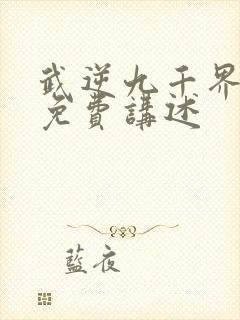 武逆九千界
免費講述
藍夜